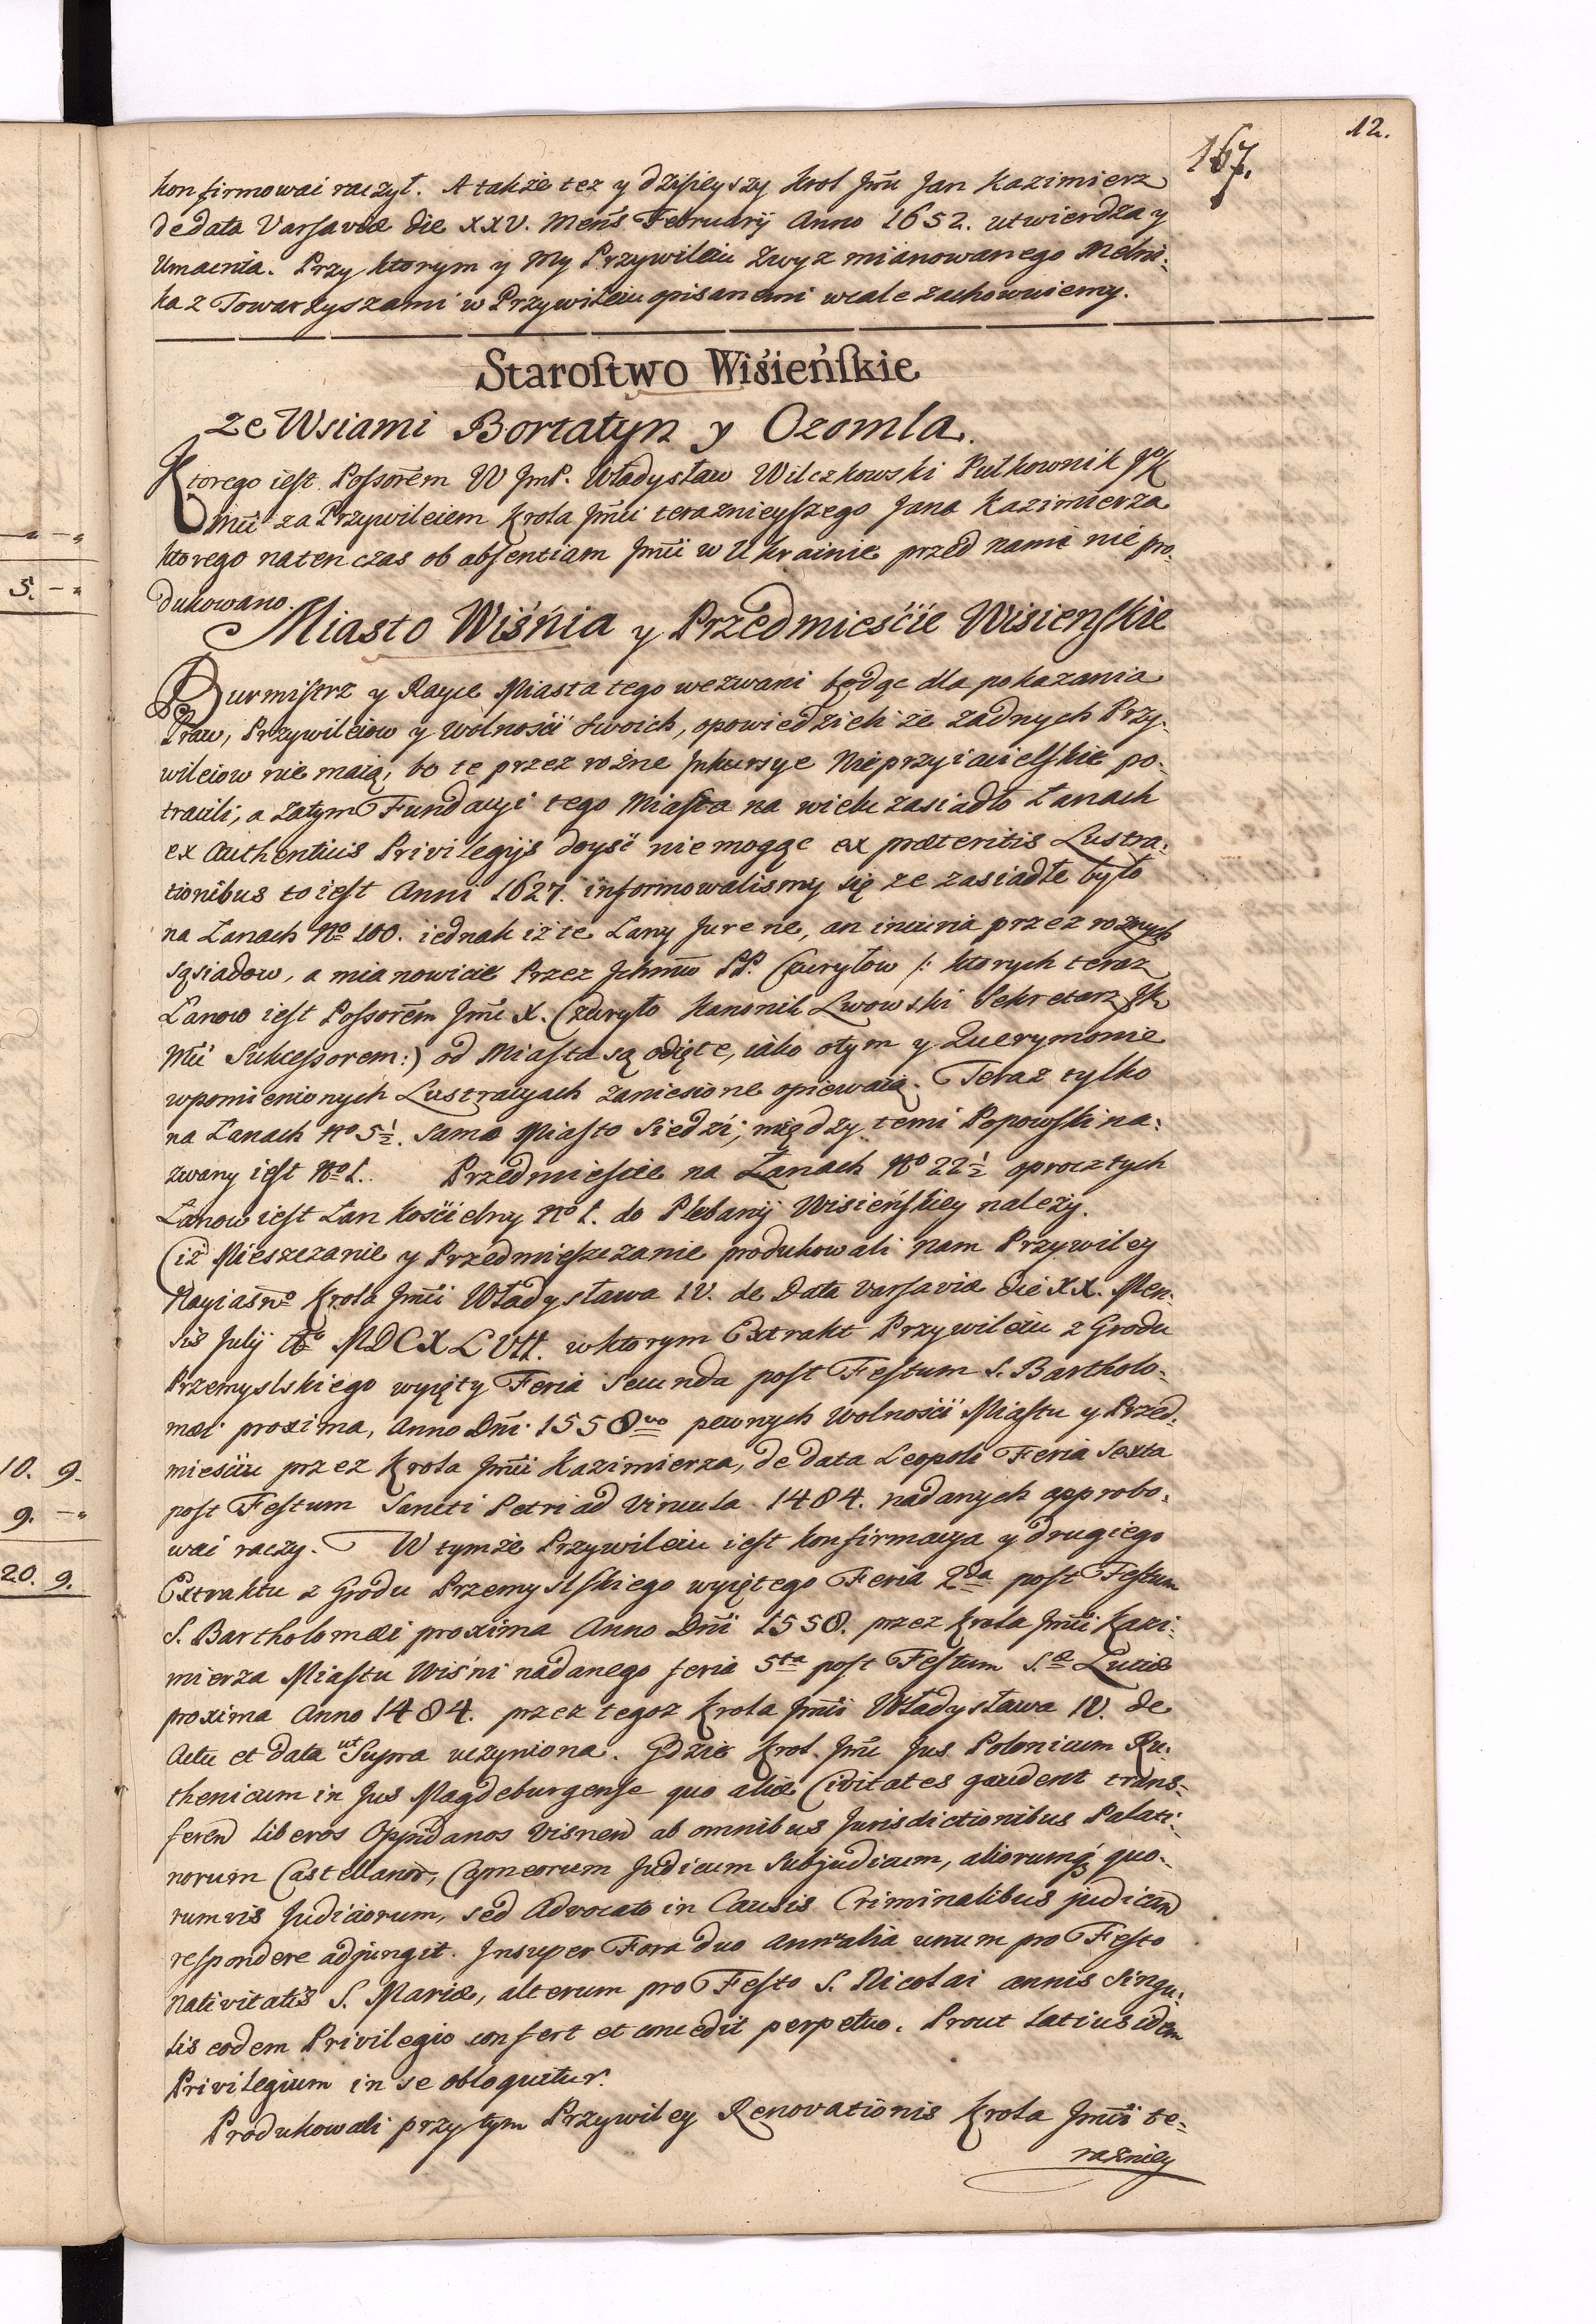 12.
167.
konfirmowai raczył. A także tez y dzisieyszy Krol Jmć Jan Kazimierz
de data Varsaviæ die XXV. Mens̃ Februarij Anno 1652. utwierdza y
Umacnia. Przy ktorym y My Przywileiu Zwyz mianowanego Melni-
ka z Towarzyszami w Przywileiu opisanemi wcale zachowuiemy.
Staroſtwo Wiśieńſkie
ze Wsiami Bortatyn y Ozomla.
Ktorego ieſt Poſsorem̃ W JmP. Władysław Wilczkowski Pułkownik JK
Mći za Przywileiem Krola Jmći teraznieyſzego Jana Kazimierza
ktorego naten czas ob abſentiam Jmći w Ukrainie przed nami nie pro-
dukowano.
Miasto Wiśńia y Przedmieśćie Wisienſkie
Burmiſtrz y Rayce Miasta tego wezwani będąc dla pokazania
Praw, Przywileiow y Wolnośći swoich, opowiedzieli że żadnych Przy-
wileiow nie maią, bo te przez rożne Inkursye Nieprzyiaielſkie po-
tracili, a zatym Fundacyi tego Miaſta na wielu zasiadło Łanach
ex Authenticis Privilegijs doyść nie mogąc ex præteritis Lustra-
tionibus to ieſt Anni 1627. informowalismy się ze zasiadłe było
na Łanach No 100. iednak iż te Łany Jure ne, an iniuria przez roznych
sąsiadow, a mianowicie Przez Ichmw PP. Czuryłow /: ktorych teraz
Łanow ieſt Poſsorem̃ Jmć X. Czuryło Kanonik Lwowski Sekretarz JK
Mći Sukceſsorem:) od Miaſta są odięte, iako otym y Querymonie
wpomienionych Lustracyach zaniesione opiewaią. Teraz tylko
na Łanach No 5½. samo Miaſto siedzi; między temi Popowſki na-
zwany ieſt No 1. Przedmieſcie na Łanach No 22½ oprocz tych
Łanow ieſt Łan kośćielny No 1. do Plebanij Wisieńſkiey należy.
Ciż Mieszczanie y Przedmieſzczanie produkowali nam Przywiley
Nayiaśño Krola Jmći Władysława IV. de Data Varſaviæ die XX. Men-
sis Julij Ao MDCXLVII. w ktorym Extrakt Przywileiu z Grodu
Przemyslskiego wyięty Feria Secunda poſt Feſtum S. Bartholo-
mæi proxima, Anno Dñi 1558vo pewnych Wolnośći Miaſtu y Przed-
mieśćiu przez Krola Jmći Kazimierza, de data Leopoli Feria Sexta
poſt Feſtum Sancti Petri ad Vincula 1484. nadanych approbo-
wai raczy. W tymże Przywileiu ieſt konfirmacya y drugiego
Extraktu z Grodu Przemyslſkiego wyiętego Feria 2da poſt Feſtum
S. Bartholomæi proxima Anno Dñi 1558. przez Krola Jmći Kazi-
mierza Miaſtu Wiśni nadanego feria 5ta poſt Feſtum S.æ Luciæ
proxima Anno 1484. przez tegoz Krola Jmći Władysława IV. de
Actu et data ut Supra uczyniona. Gdzie Krol Jmć Jus Polonicum Ru-
thenicum in Jus Magdeburgenſe quo aliæ Civitates gaudent trans-
feren̄ liberos Oppidanos Visnen̄ ab omnibus Jurisdictionibus Palati-
norum Castellanor̄, Capneorum Judicum Subjudicum, aliorumq́ quo-
rumvis Judiciorum, sed Advocato in Causis Criminalibus judican̄
reſpondere adjungit. Insuper Fora duo Annualia unum pro Feſto
Nativitatis S. Mariæ, alterum pro Feſto S. Nicolai annis Singu-
lis eodem Privilegio confert et concedit perpetuo. Prout latius idem
Privilegium in se obloquitur.
Produkowali przy tym Przywiley Renovationis Krola Jmći te-
raźniey
5.
10. 9.
9.
20. 9.